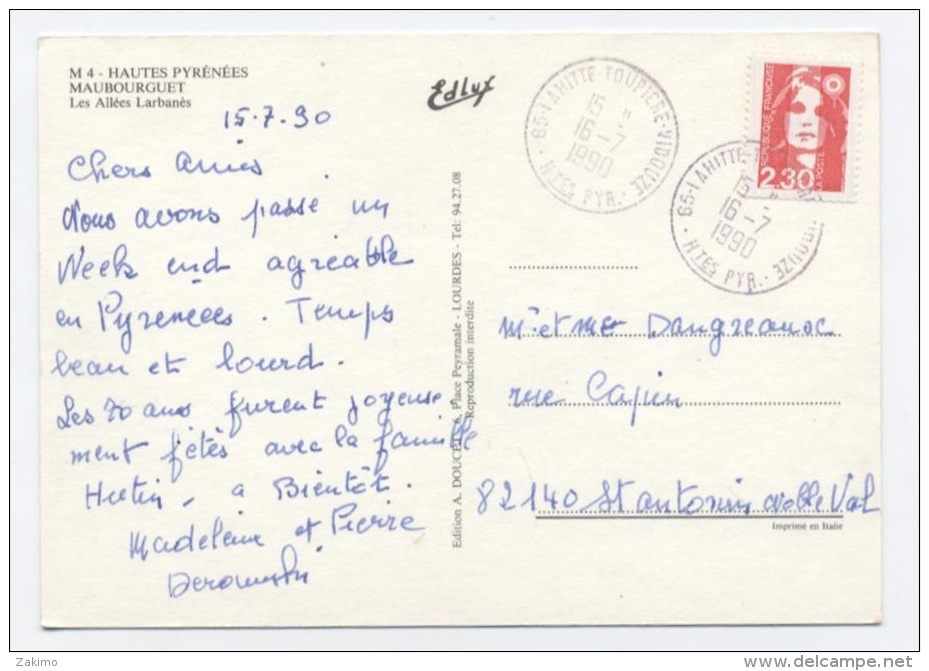 M 4 - HAUTES PYRÉNÉES
MAUBOURGUET
Les Allées Larbanès
Edlux
15.7.90
Chers Amis
Nous avons passé un
Week end agréable
en Pyrenées. Temps
beau et lourd.
Les 70 ans furent joyeuse
ment fêtés avec la famille
Hutin, a Bientôt.
Madeleine et Pierre
Edition A. DOUCET, Place Peyramale - LOURDES - Tel: 94.27.08
Reproduction interdite
65-LAHITTE-TOUPIERE-VIDOUZE
15 H
16-7
1990
HTES PYR.
65-LAHITTE-T
15 H
16-7
1990
HTES PYR. - VIDOUZE
RÉPUBLIQUE FRANÇAISE
2,30
LA POSTE
Mr et Me Dangreause
rue Capin
82140 St antonin noble Val
Imprimé en Italie
Zakimo
www.delcampe.net